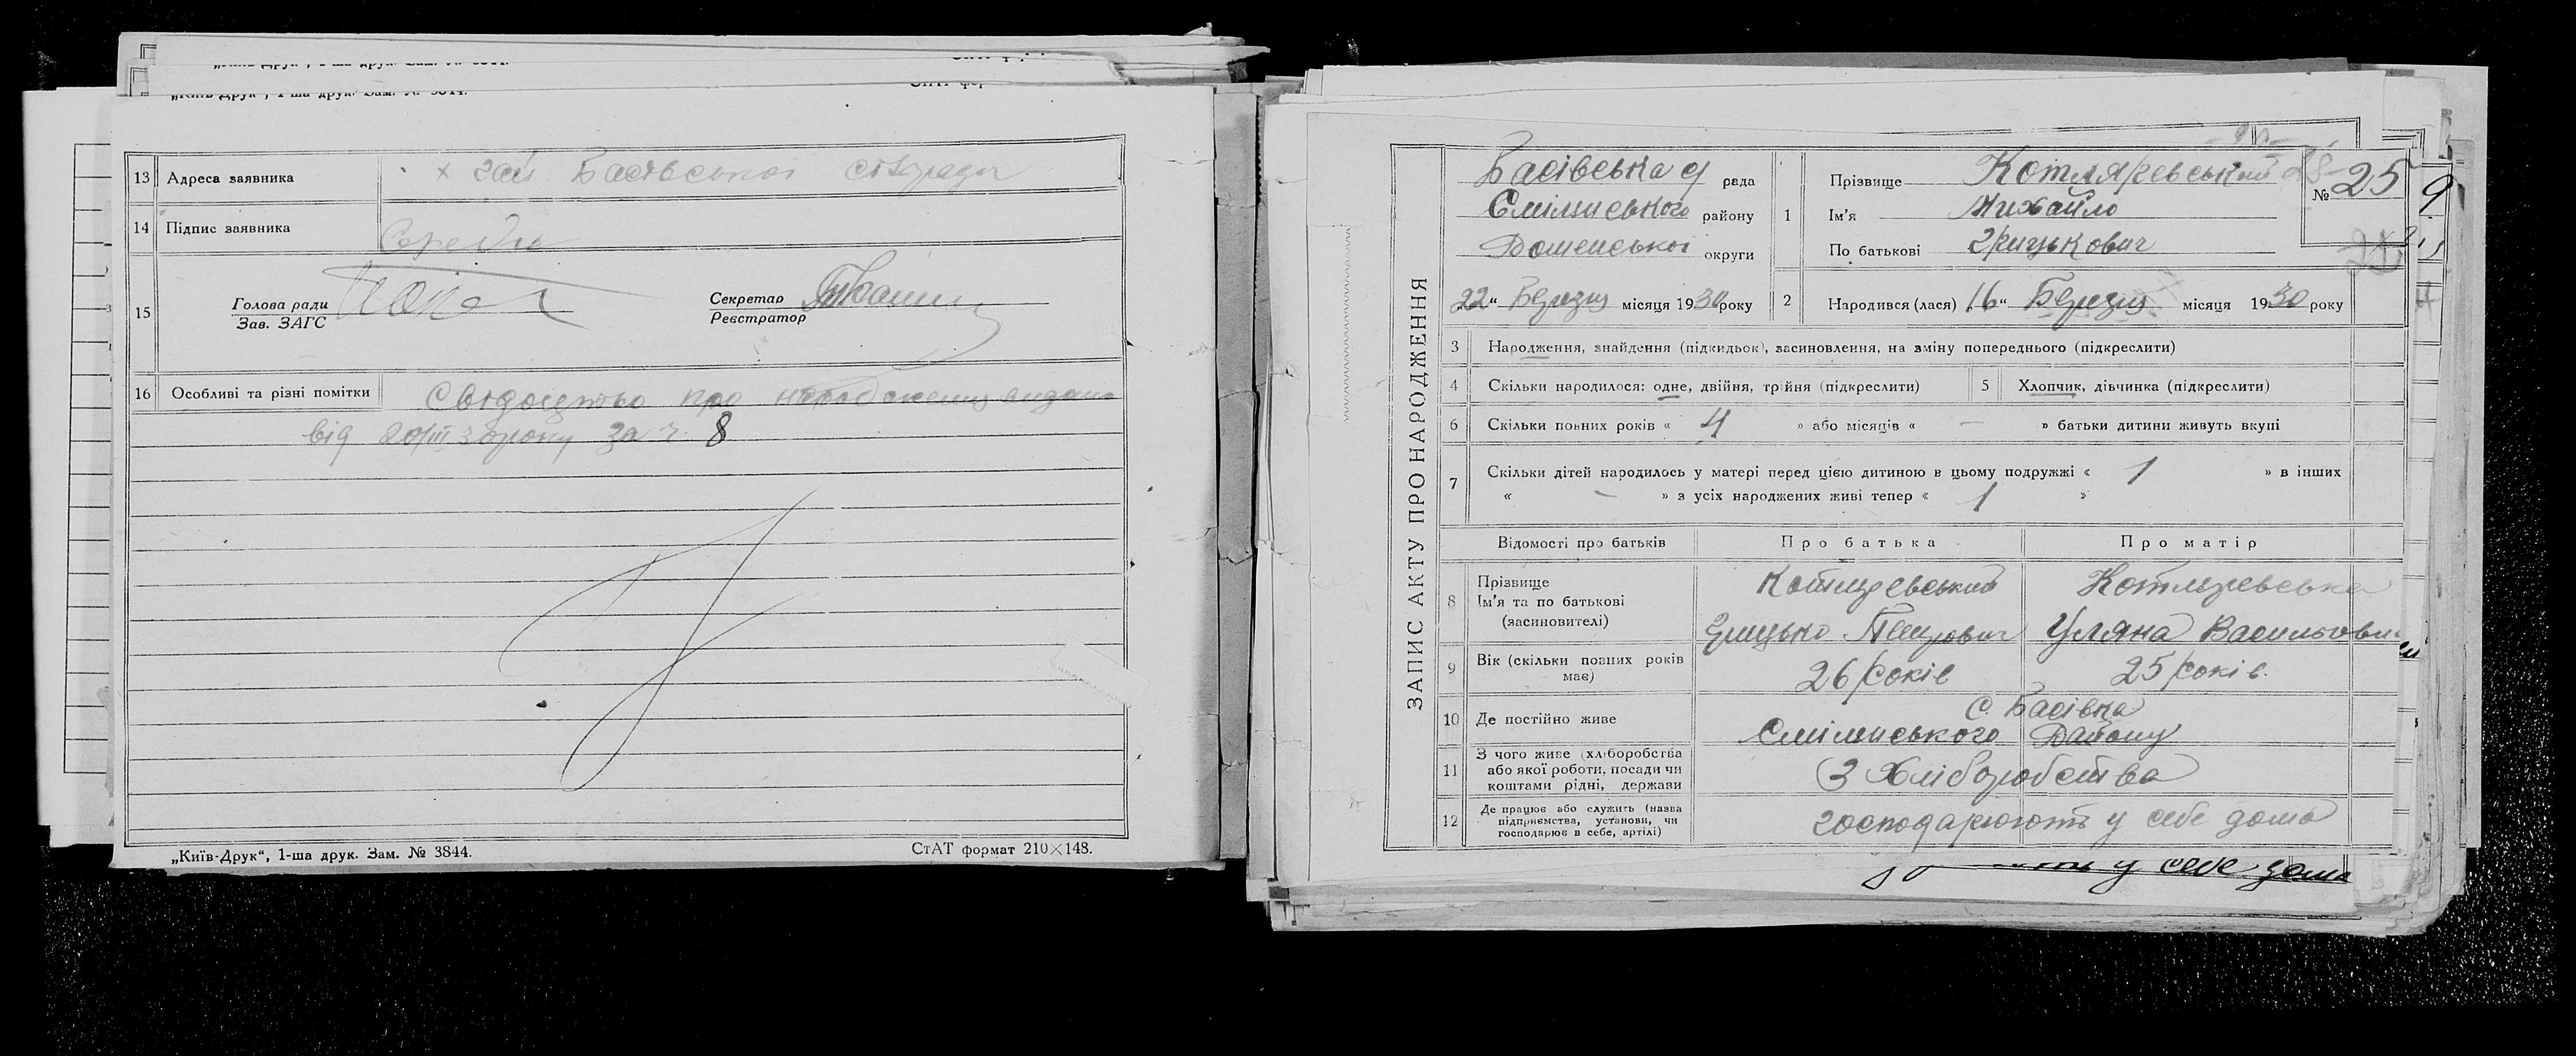 13 Адреса заявника х Гай Басівської сільради
14 Підпис заявника
15 Голова ради Секретар
Зав. ЗАГС Реєстратор
16 Особливі та різні помітки Свідоцтво про народження видано
від 20/III 30 року за ч. 8
„Київ-Друк“, 1-ша друк. Зам. № 3844. СтАТ формат 210×148.
ЗАПИС АКТУ ПРО НАРОДЖЕННЯ
Басівська с/ рада
Смілинського району
Роменської округи
„22“ Березня місяця 1930 року
1 Прізвище Котляревський
Ім'я Михайло
По батькові Грицькович
№ 25
2 Народився (лася) „16“ Березня місяця 1930 року
3 Народження, знайдення (підкидьок), засиновлення, на зміну попереднього (підкреслити)
4 Скільки народилося: одне, двійня, трійня (підкреслити) 5 Хлопчик, дівчинка (підкреслити)
6 Скільки повних років « 4 » або місяців « — » батьки дитини живуть вкупі
7 Скільки дітей народилось у матері перед цією дитиною в цьому подружжі « 1 » в інших
« – » з усіх народжених живі тепер « 1 »
Відомості про батьків Про батька Про матір
8 Прізвище Котляревський Котляревська
Ім'я та по батькові
(засиновителі) Грицько Петрович Уляна Васильовн
9 Вік (скільки повних років має) 26 років 25 років.
10 Де постійно живе с. Басівка
Смілинського Району
11 З чого живе (хліборобства або якої роботи, посади чи коштами рідні, держави З Хліборобства
12 Де працює або служить (назва підприємства, установи, чи господарює в себе, артілі) господарюють у себе дома
у себе дома